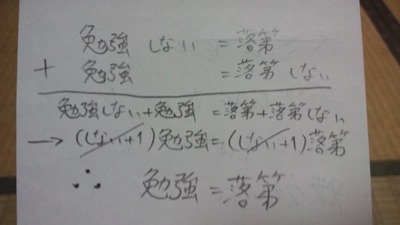 勉強 しない = 落第
+ 勉強 = 落第 しない
勉強しない+勉強 = 落第+落第しない
→ (しない+1)勉強 = (しない+1)落第
∴ 勉強 = 落第